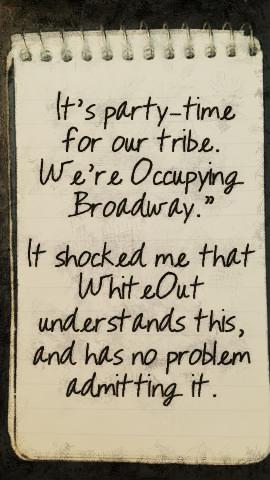 It's party-time
for our tribe.
We're Occupying
Broadway."
It shocked me that
WhiteOut
understands this,
and has no problem
admitting it.